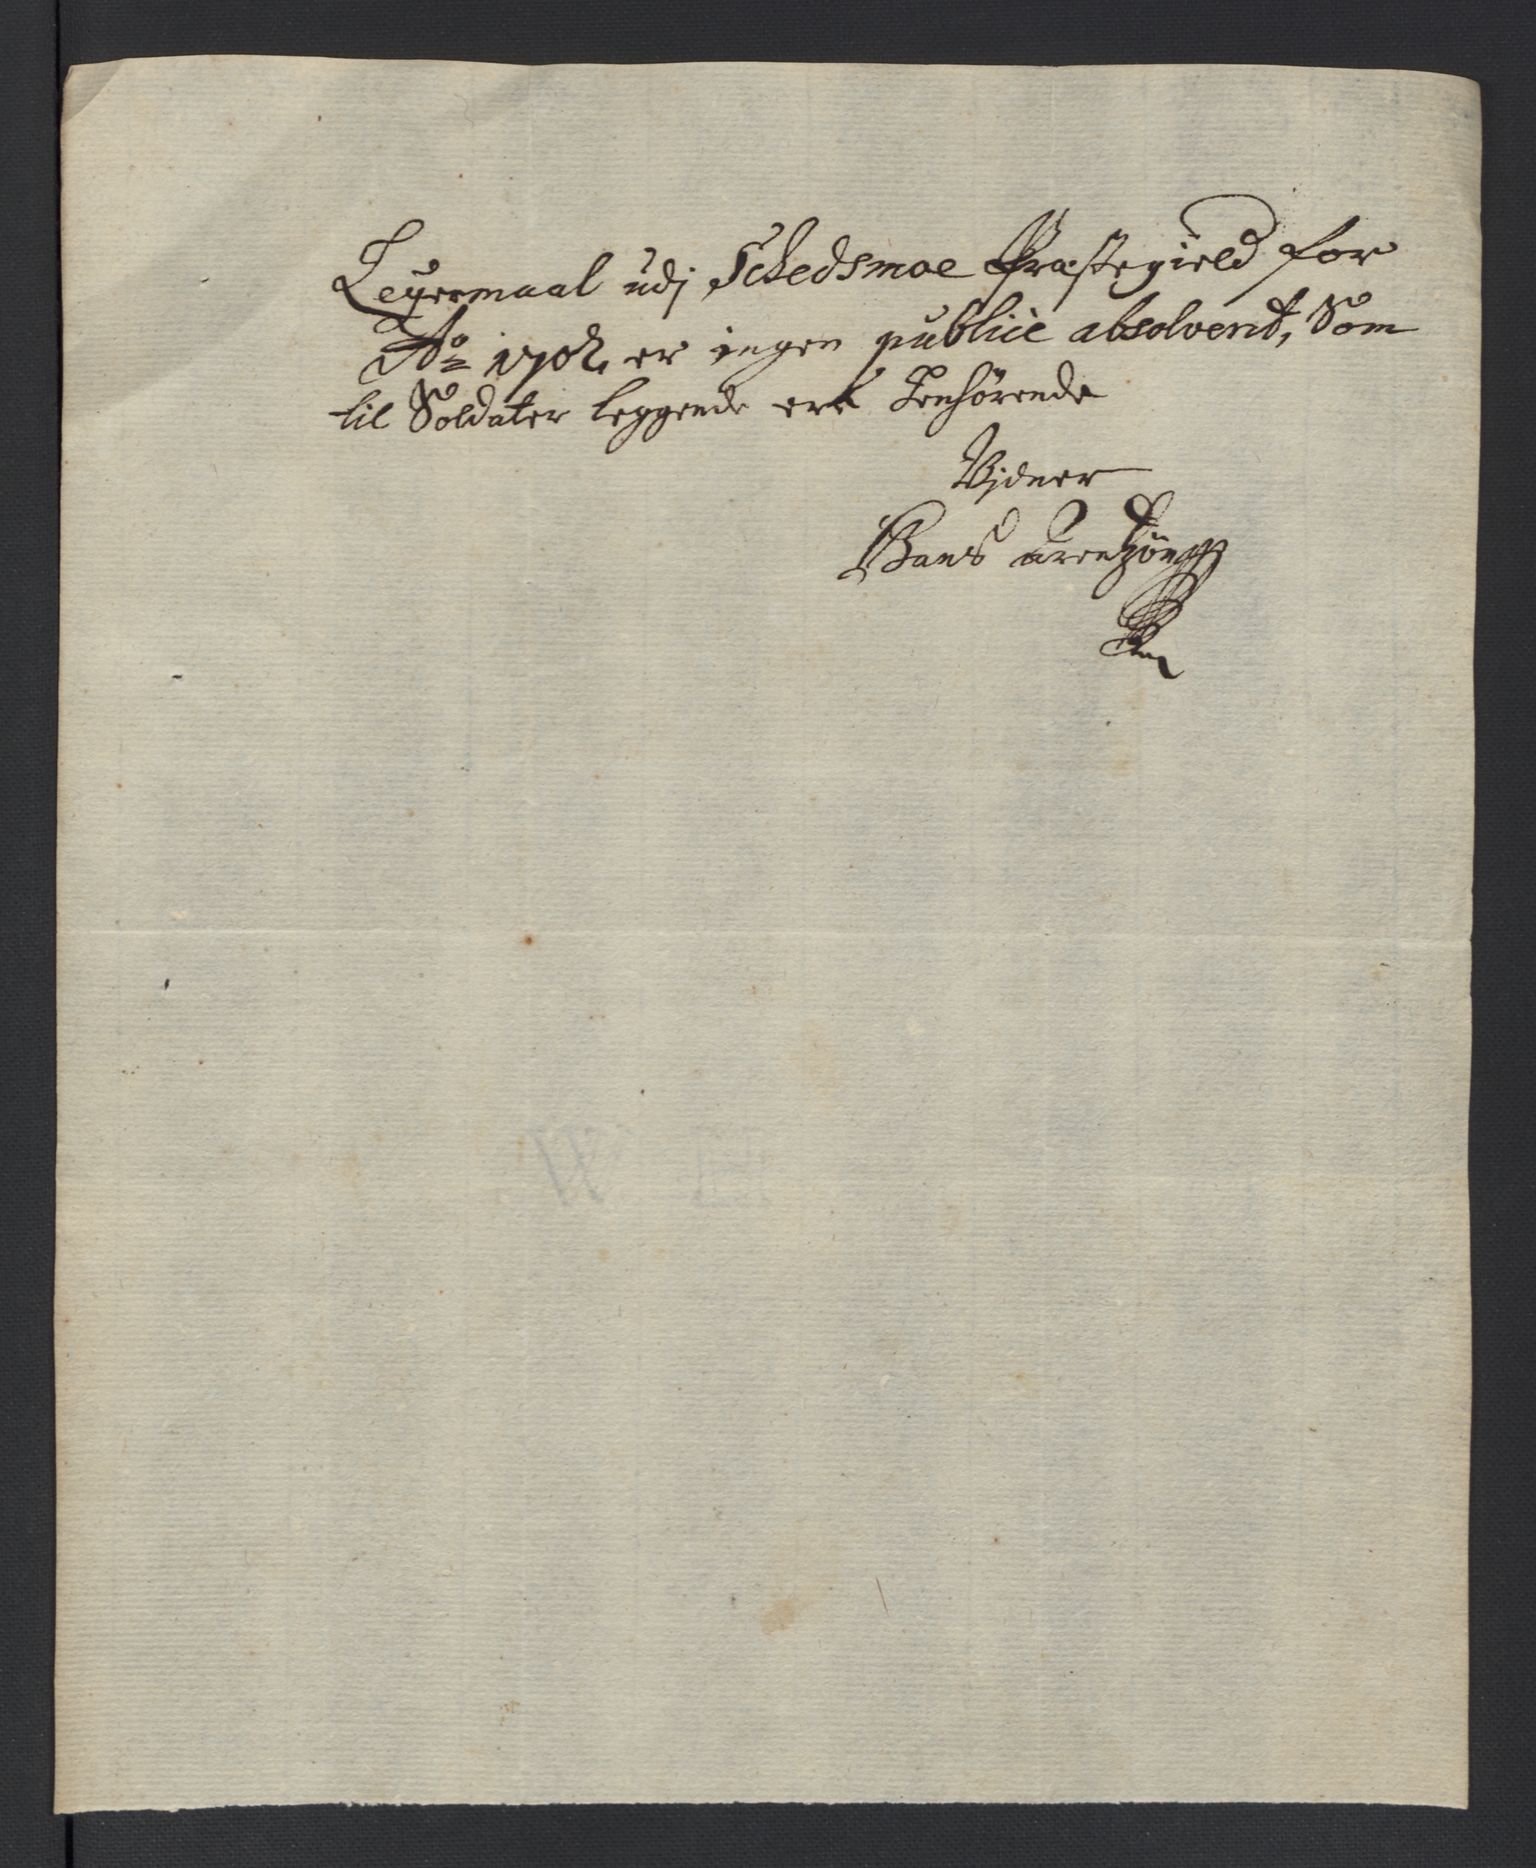 Legermaal udj Schedsmoe Præstegield for
Ao 1702, er ingen publice absolverit, Som
til Soldater leggende ere henhörende
Vidner
Hans